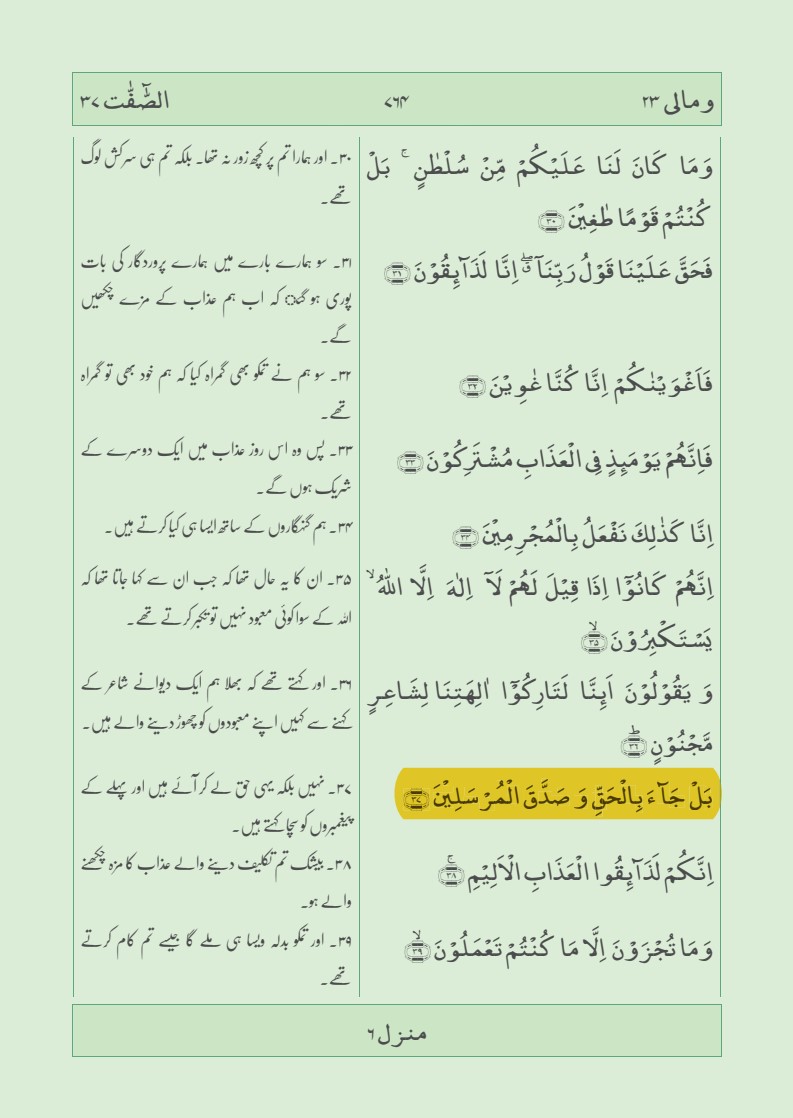 ومالی ۲۳
۷۶۴
الصّٰٓفّٰت ۳۷
وَمَا كَانَ لَنَا عَلَيْكُمْ مِّنْ سُلْطٰنٍ ۚ بَلْ
كُنْتُمْ قَوْمًا طٰغِيْنَ ۳۰
فَحَقَّ عَلَيْنَا قَوْلُ رَبِّنَآ ۖۗ اِنَّا لَذَآئِقُوْنَ ۳۱
فَاَغْوَيْنٰكُمْ اِنَّا كُنَّا غٰوِيْنَ ۳۲
فَاِنَّهُمْ يَوْمَئِذٍ فِى الْعَذَابِ مُشْتَرِكُوْنَ ۳۳
اِنَّا كَذٰلِكَ نَفْعَلُ بِالْمُجْرِمِيْنَ ۳۴
اِنَّهُمْ كَانُوْٓا اِذَا قِيْلَ لَهُمْ لَآ اِلٰهَ اِلَّا اللّٰهُ ۙ
يَسْتَكْبِرُوْنَ ۙ ۳۵
وَ يَقُوْلُوْنَ اَئِنَّا لَتَارِكُوْٓا اٰلِهَتِنَا لِشَاعِرٍ
مَّجْنُوْنٍ ؕ ۳۶
بَلْ جَآءَ بِالْحَقِّ وَ صَدَّقَ الْمُرْسَلِيْنَ ۳۷
اِنَّكُمْ لَذَآئِقُوا الْعَذَابِ الْاَلِيْمِ ۚ ۳۸
وَمَا تُجْزَوْنَ اِلَّا مَا كُنْتُمْ تَعْمَلُوْنَ ۙ ۳۹
۳۰۔ اور ہمارا تم پر کچھ زور نہ تھا۔ بلکہ تم ہی سرکش لوگ
تھے۔
۳۱۔ سو ہمارے بارے میں ہمارے پروردگار کی بات
پوری ہو گئ کہ اب ہم عذاب کے مزے چکھیں
گے۔
۳۲۔ سو ہم نے تمکو بھی گمراہ کیا کہ ہم خود بھی تو گمراہ
تھے۔
۳۳۔ پس وہ اس روز عذاب میں ایک دوسرے کے
شریک ہوں گے۔
۳۴۔ ہم گنہگاروں کے ساتھ ایسا ہی کیا کرتے ہیں۔
۳۵۔ ان کا یہ حال تھا کہ جب ان سے کہا جاتا تھا کہ
اللہ کے سوا کوئی معبود نہیں تو تکبر کرتے تھے۔
۳۶۔ اور کہتے تھے کہ بھلا ہم ایک دیوانے شاعر کے
کہنے سے کہیں اپنے معبودوں کو چھوڑ دینے والے ہیں۔
۳۷۔ نہیں بلکہ یہی حق لے کر آئے ہیں اور پہلے کے
پیغمبروں کو سچا کہتے ہیں۔
۳۸۔ بیشک تم تکلیف دینے والے عذاب کا مزہ چکھنے
والے ہو۔
۳۹۔ اور تمکو بدلہ ویسا ہی ملے گا جیسے تم کام کرتے
تھے۔
منزل ۶